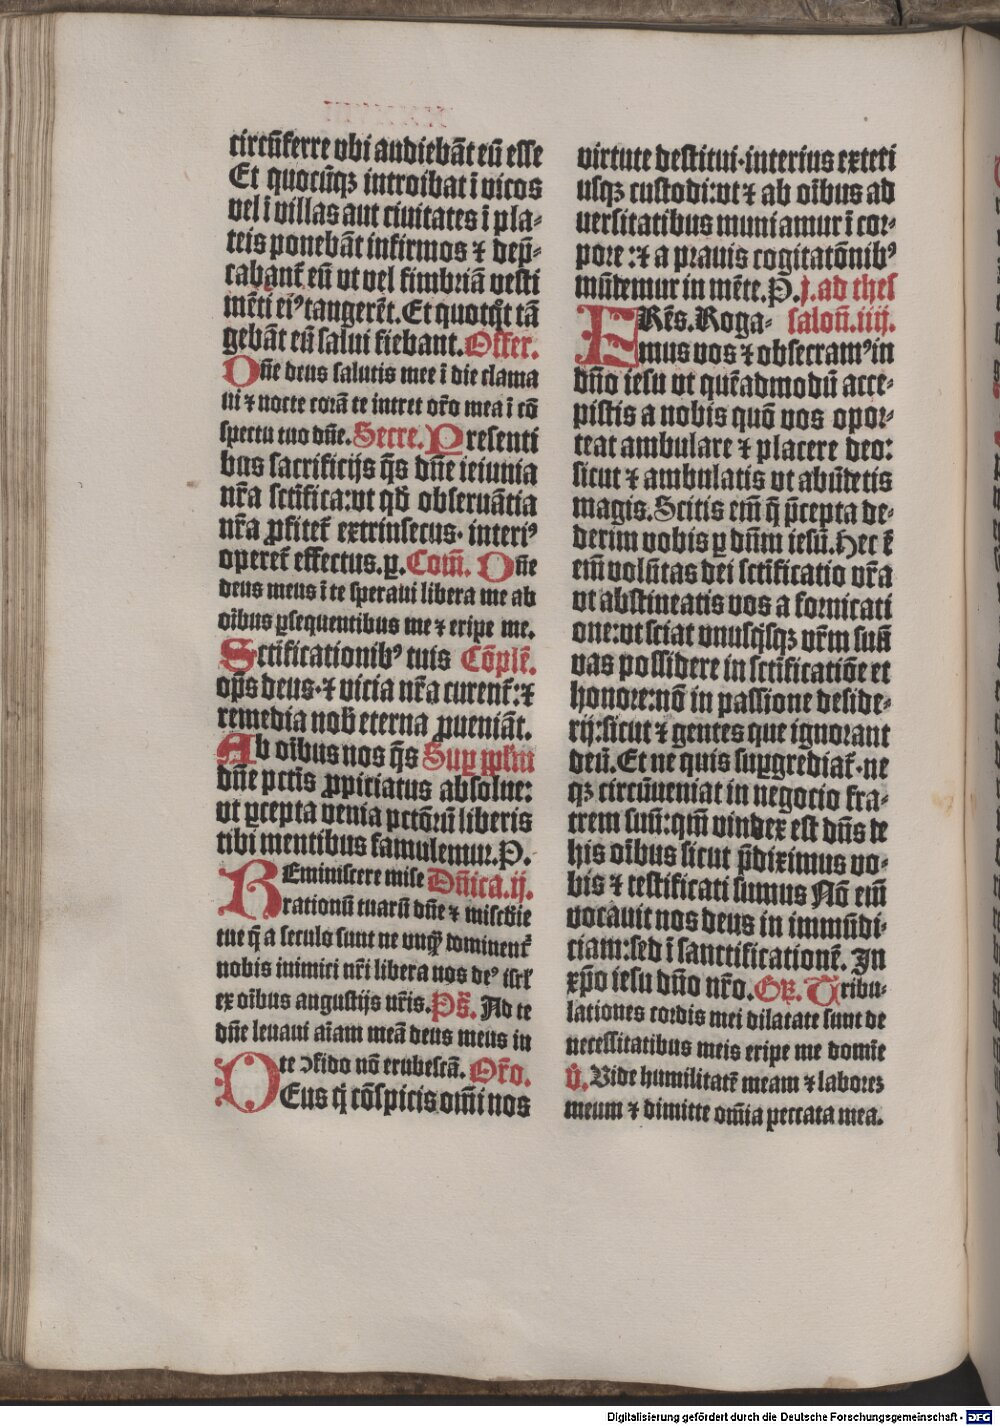 circūferre vbi audiebāt eū esse
Et quocūqꝫ introibat ī vicos
vel ī villas aut ciuitates ī pla-
teis ponebāt infirmos ⁊ dep̄-
cabant̄ eū vt vel fimbriā vesti
mēti eiꝰ tangerēt. Et quotqͦt tā
gebāt eū salui fiebant. Offer.
Dn̄e deus salutis mee ī die clama
ui ⁊ nocte corā te intret or̄o mea ī cō
spectu tuo dn̄e. Secre. Presenti
bus sacrificijs q̄s dn̄e ieiunia
nr̄a sctīfica: vt qd̄ obseruātia
nr̄a ꝓfitet̄ extrinsecus· interiꝰ
operet̄ effectus. ꝑ. Com̄. Dn̄e
deus meus ī te speraui libera me ab
oībus ꝑsequentibus me ⁊ eripe me.
Sctīficationibꝰ tuis Cōplē.
op̄s deus·⁊ vicia nr̄a curent̄: ⁊
remedia nob̄ eterna ꝓueniāt.
Ab oībus nos q̄s Suꝑ pplm̄
dn̄e pctīs ꝓpiciatus absolue:
vt ꝑcepta venia pctōrū liberis
tibi mentibus famulemur. P.
REminiscere mise Dn̄ica.ij.
rationū tuarū dn̄e ⁊ misc̄die
tue q̄ a seculo sunt ne vnqꝫ dominent̄
nobis inimici nr̄i libera nos deꝰ isrl̄
ex oībus angustijs nr̄is. Ps̄. Ad te
dn̄e leuaui aīam meā deus meus in
te ↄfido nō erubescā. Or̄o.
DEus q̄ cōspicis om̄i nos
virtute destitui· interius exteri
usqꝫ custodi: vt ⁊ ab oībus ad
uersitatibus muniamur ī cor-
pore :⁊ a prauis cogitatōnibꝰ
mūdemur in mēte. P̄. j. ad thes
FRēs. Roga- salon̄.iiij.
mus vos ⁊ obsecramꝰ in
dn̄o iesu vt quēadmodū acce-
pistis a nobis quō vos opor-
teat ambulare ⁊ placere deo:
sicut ⁊ ambulatis vt abūdetis
magis. Scitis em̄ q̄ p̄cepta de-
derim vobis ꝑ dn̄m iesū. Hec ē
em̄ volūtas dei sctīficatio vr̄a
vt abstineatis vos a fornicati
one: vt sciat vnusq̄sqꝫ vr̄m suū
vas possidere in sctīficatiōe et
honore: nō in passione deside-
rij: sicut ⁊ gentes que ignorant
deū. Et ne quis suꝑgrediat̄· ne
qꝫ circūueniat in negocio fra-
trem suū: qm̄ vindex est dn̄s de
his oībus sicut p̄diximus vo-
bis ⁊ testificati sumus Nō em̄
vocauit nos deus in immūdi-
ciam: sed ī sanctificationē. In
xp̄o iesu dn̄o nr̄o. Gr̄. Tribu-
lationes cordis mei dilatate sunt de
necessitatibus meis eripe me domīe
v̄. Vide humilitatē meam ⁊ laborē
meum ⁊ dimitte om̄ia peccata mea.
Digitalisierung gefördert durch die Deutsche Forschungsgemeinschaft - DFG